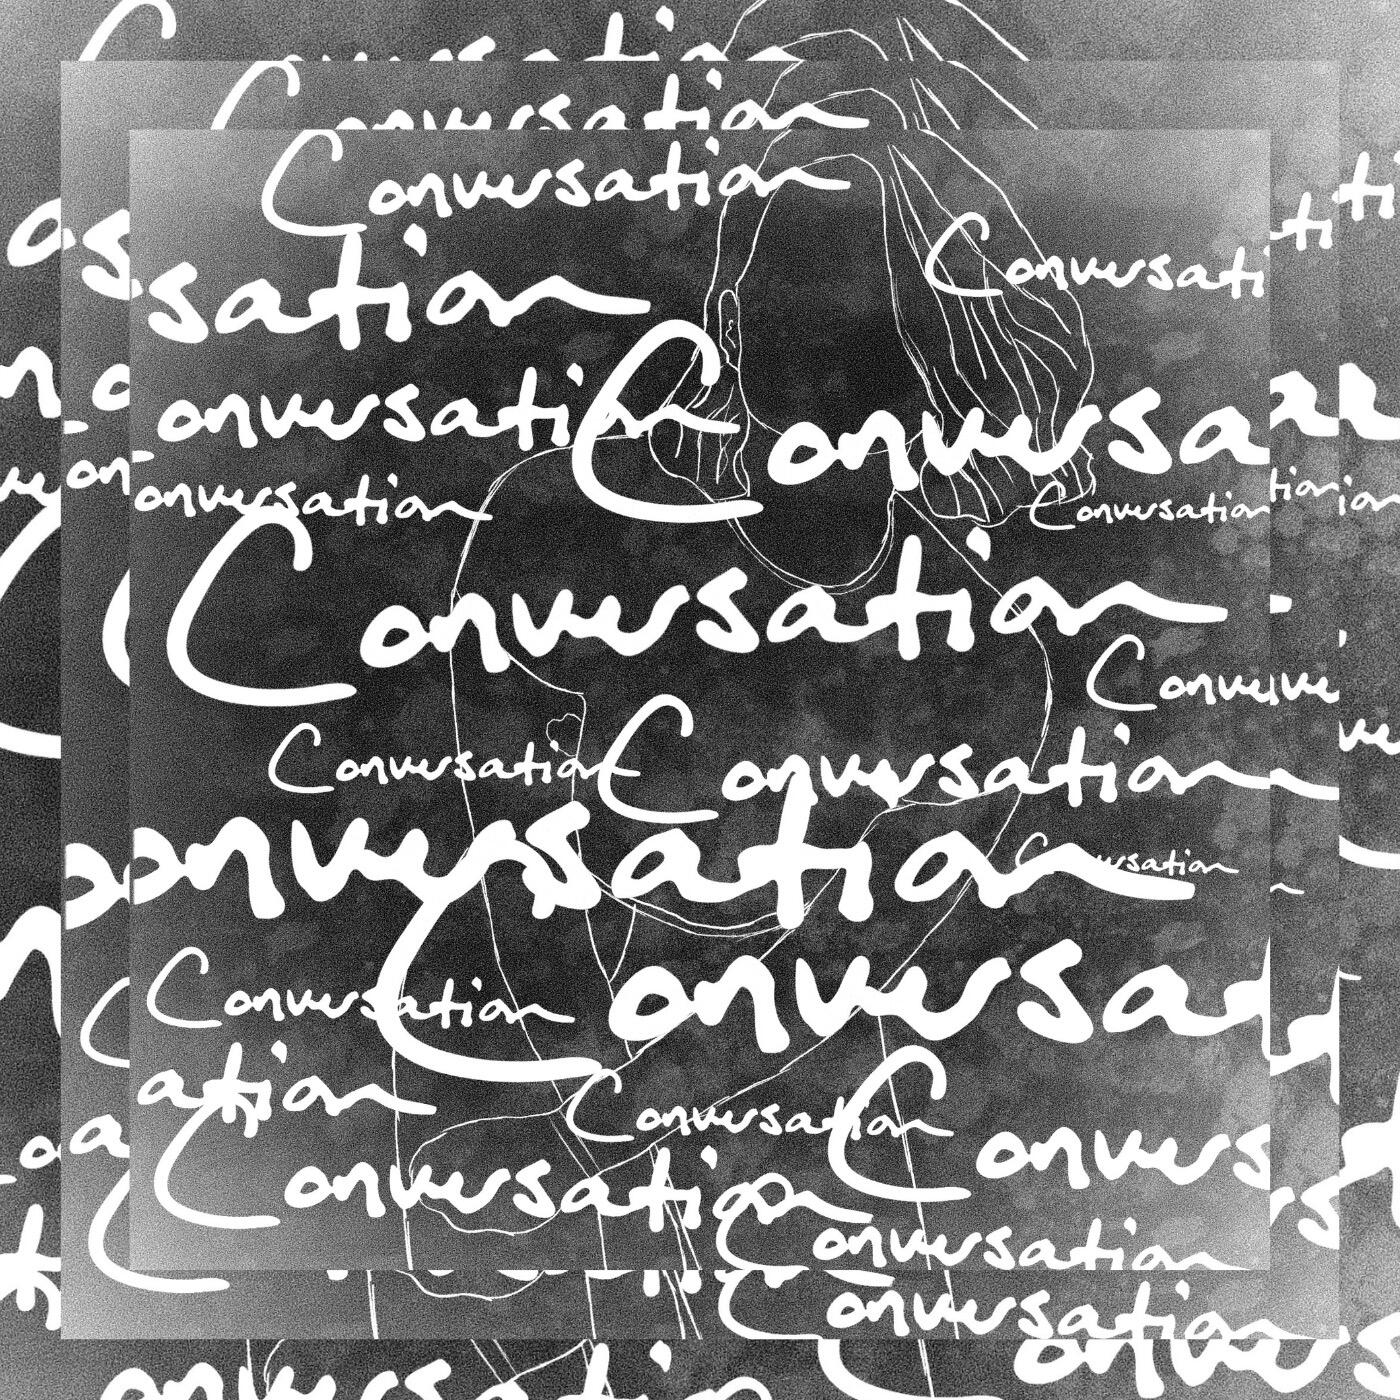 Conversation
Conversation
Conversati
sation
onversation
Conversa
onversation
Conversation
Conversation
Conve
Conversation
Conversation
onversation
Conversation
Conversa
ation
Conversation
Conversation
Convers
onversation
onversation